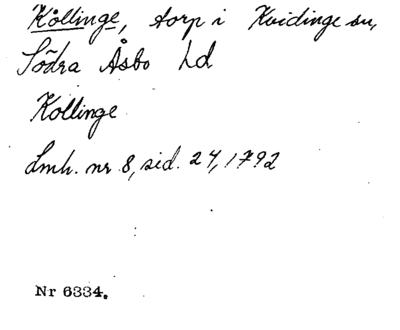 Kollinge, torp i Kvidinge sn,
Södra Åsbo hd
Kollinge
Lmh. nr 8, sid. 24, 1792
Nr 6334.